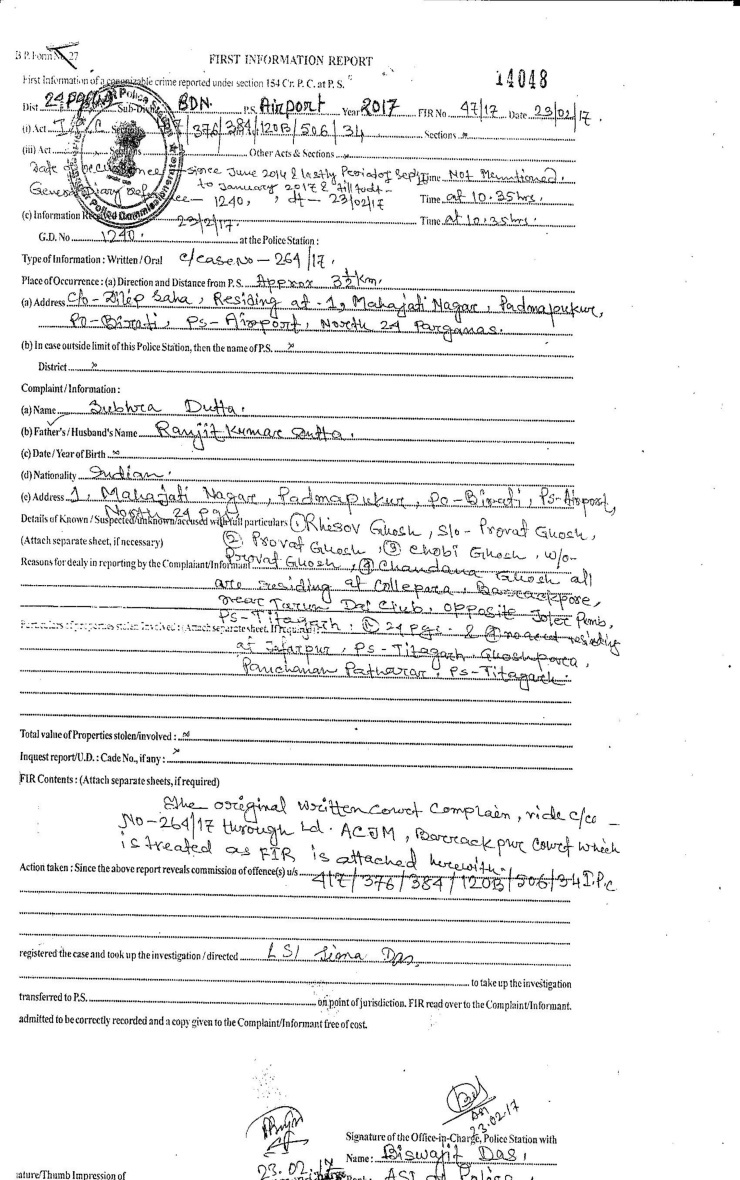 B P. Form No. 27
FIRST INFORMATION REPORT
14048
First Information of a cognizable crime reported under section 154 Cr. P. C. at P. S.
Dist. 24 Sub-Div BDN. P.S. Airport Year 2017 FIR No 47/17 Date 23/02/17.
(i) Act I.P.C Sections /376/384/120B/506/34 Sections
(iii) Act Sections Other Acts & Sections
Date of occurrence - since June 2014 & lastly Period of Sept Time Not Menntioned.
to January 2017 & till todt-
General Diary Ref - 1240, dt- 23/02/17 Time at 10.35 hrs.
(c) Information Received 23/2/17. Time at 10.35 hrs.
G.D. No 1240. at the Police Station :
Type of Information : Written / Oral c/case No - 264/17.
Place of Occurrence : (a) Direction and Distance from P. S. Approx 3½ km.
(a) Address C/o- Dilip Saha, Residing at - 1, Mahajati Nagar, Padmapukur,
Po- Birati, Ps- Airport, North 24 Parganas.
(b) In case outside limit of this Police Station, then the name of P.S. x
District x
Complaint / Information :
(a) Name Subhra Dutta.
(b) Father's / Husband's Name Ranjit Kumar Dutta.
(c) Date / Year of Birth
(d) Nationality Indian.
(e) Address 1, Mahajati Nagar, Padmapukur, Po- Birati, Ps- Airport,
North 24 Pgs
Details of Known / Suspected/unknown/accused with full particulars (1) Rhisov Ghosh, S/o- Provat Ghosh,
(Attach separate sheet, if necessary) (2) Provat Ghosh, (3) Chobi Ghosh, w/o-
Reasons for dealy in reporting by the Complaiant/Informant Provat Ghosh, (4) Chandana Ghosh all
are residing at Collepara, Barrackpore,
near Tarun Dal Club, opposite
Ps- Titagarh, 24 pgs. & residing
Particulars of properties stolen involved : (Attach separate sheet. If required) :
at Jafarpur, Ps- Titagarh Ghoshpara,
Panchanan Ps- Titagarh.
Total value of Properties stolen/involved :
Inquest report/U.D. : Cade No., if any : x
FIR Contents : (Attach separate sheets, if required)
The original written Court Complain, vide c/ca -
No- 264/17 through Ld. ACJM, Barrackpur Court which
is treated as FIR is attached herewith.
Action taken : Since the above report reveals commission of offence(s) u/s 417/376/384/120B/506/34 I.P.C
registered the case and took up the investigation / directed LSI Sima Das,
to take up the investigation
transferred to P.S. on point of jurisdiction. FIR read over to the Complaint/Informant.
admitted to be correctly recorded and a copy given to the Complaint/Informant free of cost.
ASI
23.02.17
Signature of the Office-in-Charge, Police Station with
Name : Biswajit Das,
23.02.17
ASI of Police
Thumb Impression of